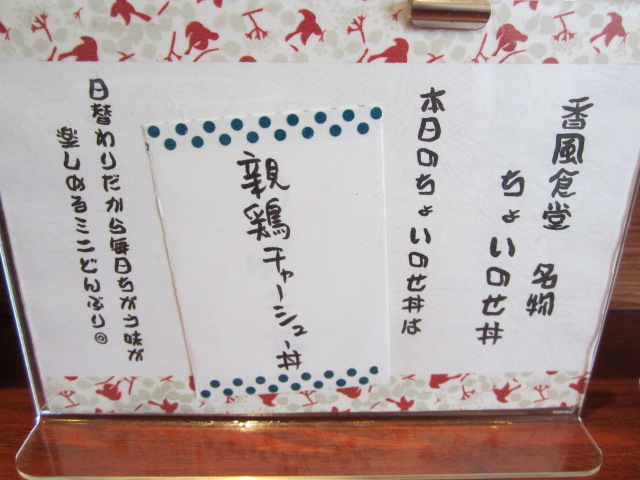 香風食堂 名物
ちょいのせ丼
本日のちょいのせ丼は
親鶏チャーシュー丼
日替わりだから毎日ちがう味が
楽しめるミニどんぶり◎